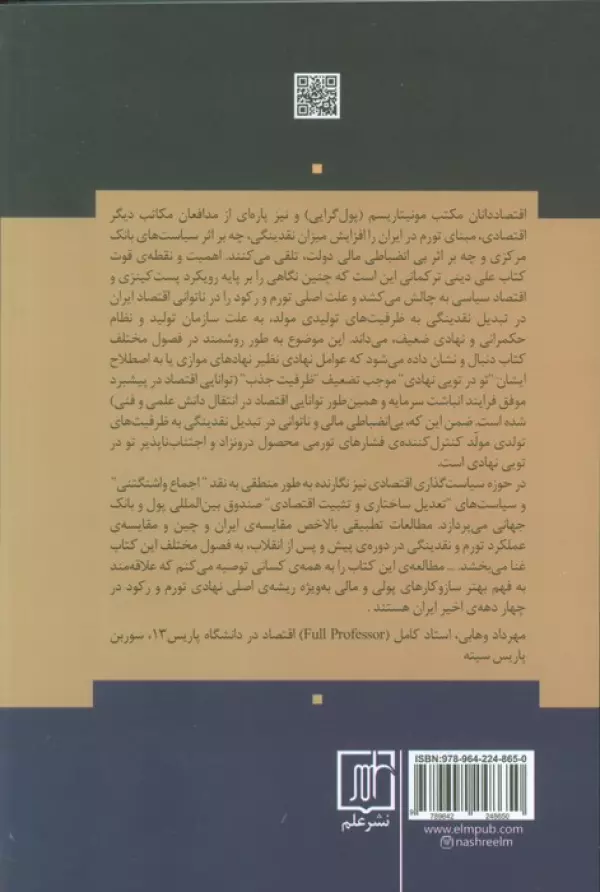 اقتصاددانان مکتب مونیتاریسم (پول‌گرایی) و نیز پاره‌ای از مدافعان مکاتب دیگر
اقتصادی، مبنای تورم در ایران را افزایش میزان نقدینگی، چه بر اثر سیاست‌های بانک
مرکزی و چه بر اثر بی انضباطی مالی دولت، تلقی می‌کنند. اهمیت و نقطه‌ی قوت
کتاب علی دینی ترکمانی این است که چنین نگاهی را بر پایه رویکرد پست‌کینزی و
اقتصاد سیاسی به چالش می‌کشد و علت اصلی تورم و رکود را در ناتوانی اقتصاد ایران
در تبدیل نقدینگی به ظرفیت‌های تولیدی مولد، به علت سازمان تولید و نظام
حکمرانی و نهادی ضعیف، می‌داند. این موضوع به طور روشمند در فصول مختلف
کتاب دنبال و نشان داده می‌شود که عوامل نهادی نظیر نهادهای موازی یا به اصطلاح
ایشان "تو در تویی نهادی" موجب تضعیف "ظرفیت جذب" (توانایی اقتصاد در پیشبرد
موفق فرایند انباشت سرمایه و همین‌طور توانایی اقتصاد در انتقال دانش علمی و فنی)
شده است. ضمن این که، بی‌انضباطی مالی و ناتوانی در تبدیل نقدینگی به ظرفیت‌های
تولدی مولّد کنترل‌کننده‌ی فشارهای تورمی محصول درونزاد و اجتناب‌ناپذیر تو در
تویی نهادی است.
در حوزه سیاست‌گذاری اقتصادی نیز نگارنده به طور منطقی به نقد "اجماع واشنگتنی"
و سیاست‌های "تعدیل ساختاری و تثبیت اقتصادی" صندوق بین‌المللی پول و بانک
جهانی می‌پردازد. مطالعات تطبیقی بالاخص مقایسه‌ی ایران و چین و مقایسه‌ی
عملکرد تورم و نقدینگی در دوره‌ی پیش و پس از انقلاب، به فصول مختلف این کتاب
غنا می‌بخشد. ... مطالعه‌ی این کتاب را به همه‌ی کسانی توصیه می‌کنم که علاقه‌مند
به فهم بهتر سازوکارهای پولی و مالی به‌ویژه ریشه‌ی اصلی نهادی تورم و رکود در
چهار دهه‌ی اخیر ایران هستند.
مهرداد وهابی، استاد کامل (Full Professor) اقتصاد در دانشگاه پاریس۱۳، سوربن
پاریس سیته
ISBN:978-964-224-865-0
9 789642 248650
نشر علم
www.elmpub.com
nashreelm